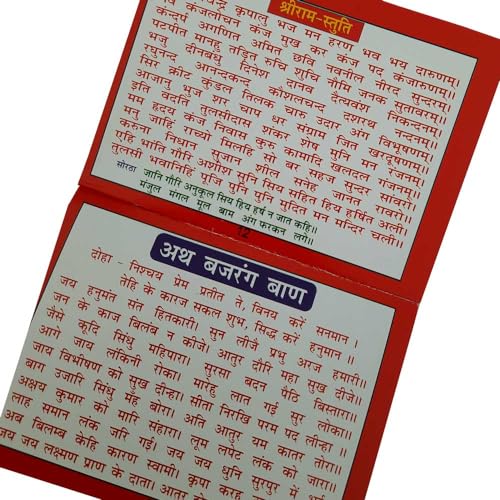 श्रीराम-स्तुति
कृपालु भज मन हरण भव भय दारुणम्।
कंजलोचन कंज मुख कर कंज पद कंजारुणम्।।
कंदर्प अगणित अमित छवि नवनील नीरद सुन्दरम्।
पटपीत मानहु तड़ित रुचि शुचि नौमि जनक सुतावरम्।।
भजु दीनबंधु दिनेश दानव दैत्यवंश निकन्दनम्।
रघुनन्द आनन्दकन्द कोशलचन्द दशरथ नन्दनम्।।
सिर क्रीट कुंडल तिलक चारु उदार अंग विभूषणम्।
आजानु भुज शर चाप धर संग्राम जित खरदूषणम्।।
इति वदति तुलसीदास शंकर शेष मुनि मन रंजनम्।
मम हृदय कंज निवास कुरु कामादि खलदल गंजनम्।।
मनु जाहिं राच्यो मिलहि सो बर सहज सुन्दर सांवरो।
करुना निधान सुजान शील सनेह जानत रावरो।।
एहि भांति गौरि अशीश सुनि सिय सहित हिय हर्षित अली।
तुलसी भवानिहिं पूजि पुनि पुनि मुदित मन मन्दिर चली।।
सोरठा जानि गौरि अनुकूल सिय हिय हर्ष न जात कहि।।
मंजुल मंगल मूल बाम अंग फरकन लगे।।
12
अथ बजरंग बाण
दोहा - निश्चय प्रेम प्रतीत ते, विनय करें सनमान।
तेहि के कारज सकल शुभ, सिद्ध करें हनुमान।।
जय हनुमंत संत हितकारी। सुन लीजै प्रभु अरज हमारी।।
जन के काज बिलंब न कीजे। आतुर दौरि महा सुख दीजे।।
जैसे कूदि सिंधु महिपारा। सुरसा बदन पैठि बिस्तारा।।
आगे जाय लंकिनी रोका। मारेहु लात गई सुर लोका।।
जाय विभीषण को सुख दीन्हा। सीता निरखि परम पद लीन्हा।।
बाग उजारि सिंधु मँह बोरा। अति आतुर यम कातर तोरा।।
अक्षय कुमार को मारि संहारा। लूम लपेट लंक को जारा।।
लाह समान लंक जरि गई। जय जय धुनि सुरपुर
अब बिलम्ब केहि कारण स्वामी। कृपा करहु
जय जय लक्ष्मण प्राण के दाता। आतुर